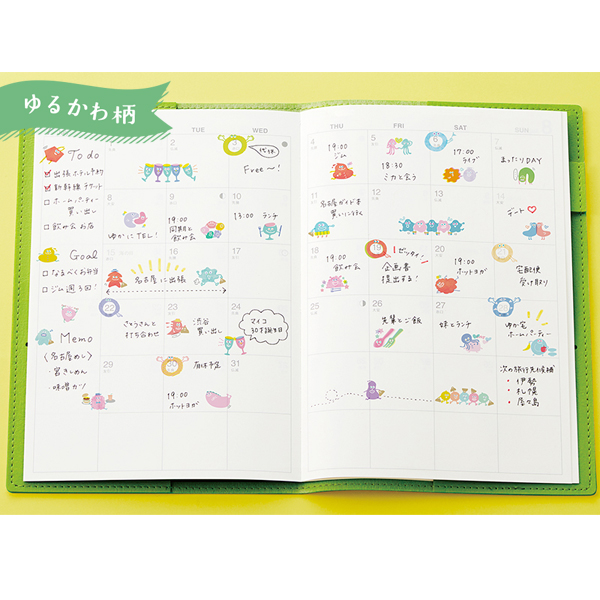 ゆるかわ柄
TUE
WED
THU
FRI
SAT
SUN
To do
出張ホテル予約
新幹線チケット
ホームパーティー
買い出し
飲み会お店
Goal
なるべくお弁当
ジム週3回!
Memo
〈名古屋めし〉
・宮きしめん
・味噌カツ
2
代休
Free〜!
4
19:00
ジム
5
18:30
ミカと会う
6
17:00
ライブ
7
まったりDAY
8
ゆかにTEL!
9
19:00
同期と
飲み会
10
13:00 ランチ
11
名古屋ガイドを
買いに行く
12
13
14
デート♡
15
名古屋に出張
16
17
18
19:00
飲み会
19
1ゼッタイ!
企画書
提出する!
20
19:00
ホットヨガ
21
宅配便
受け取り
22
きょうさんと
打ち合わせ
23
渋谷
買い出し
24
マイコ
30才誕生日
25
26
先輩とご飯
27
妹とランチ
28
ゆか宅
ホームパーティー
29
19:00
ホットヨガ
30
有休予定
31
次の旅行先候補
・伊勢
・札幌
・屋久島